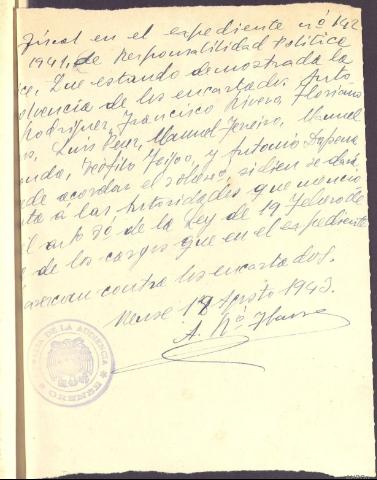 fiscal en el expediente nº 142
1941, de Responsabilidad Politica
ice, Que estando demostrada la
olvencia de los encartados
Rodriguez, Francisco Rivero, Floriano
Luis Perez, Manuel Pereiro, Manuel
anda, Teofilo Feijoo, y Antonio Dapena
ede acordar el sobreso, si bien se dará
nta á las Autoridades que mencio
el artº 30 de la Ley de 19 Febrero de
de los cargos que en el expediente
arezcan contra los encartados.
Orense 18 Agosto 1943.
DE LA AUDIENCIA